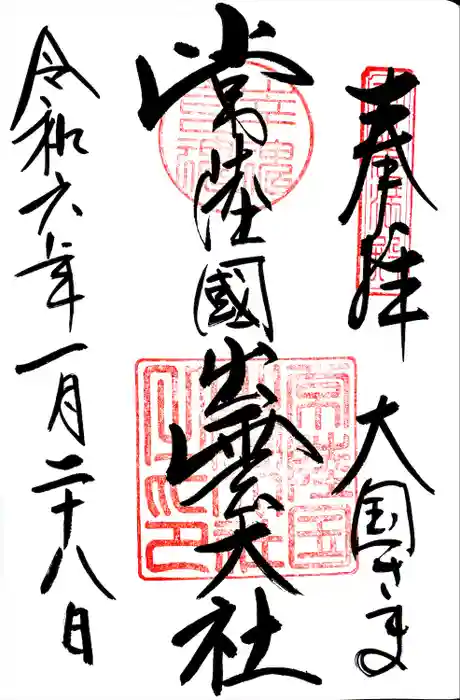 奉拝
大国さま
常陸國出雲大社
令和六年一月二十八日